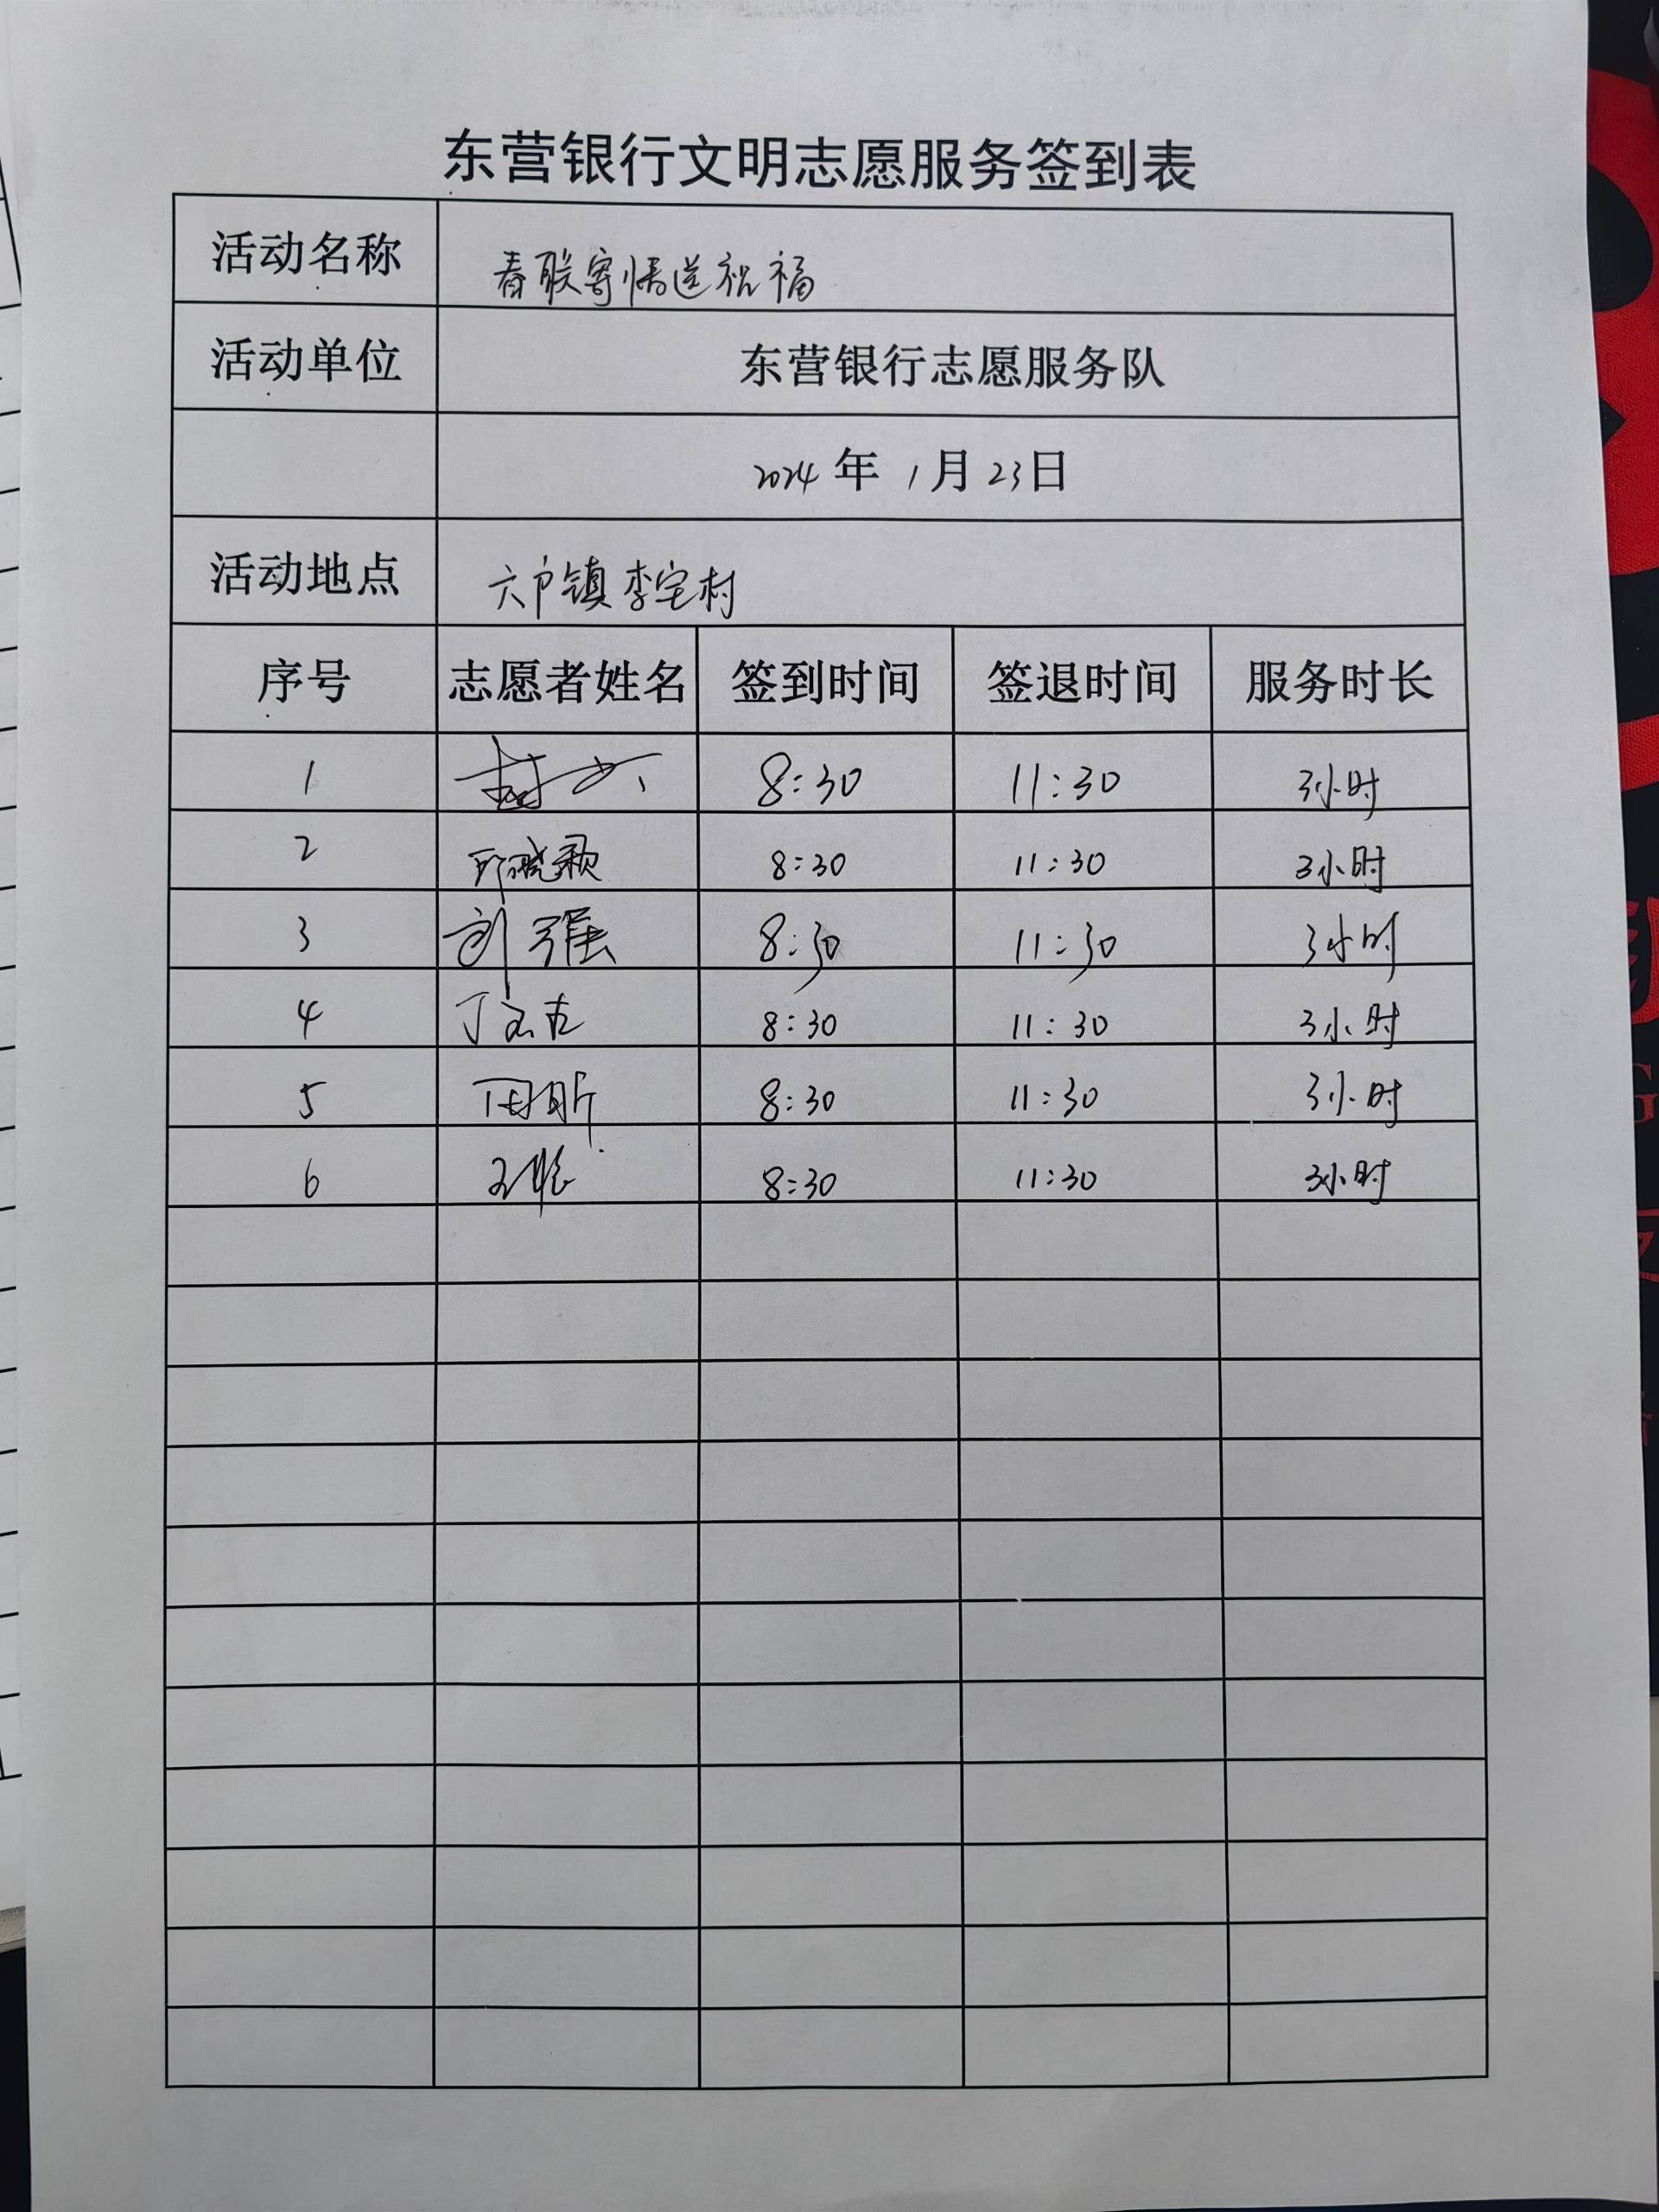 东营银行文明志愿服务签到表
活动名称 春联寄情送祝福
活动单位 东营银行志愿服务队
2024年1月23日
活动地点 六户镇李宅村
序号 志愿者姓名 签到时间 签退时间 服务时长
1 8:30 11:30 3小时
2 邱晓颖 8:30 11:30 3小时
3 刘强 8:30 11:30 3小时
4 8:30 11:30 3小时
5 8:30 11:30 3小时
6 8:30 11:30 3小时